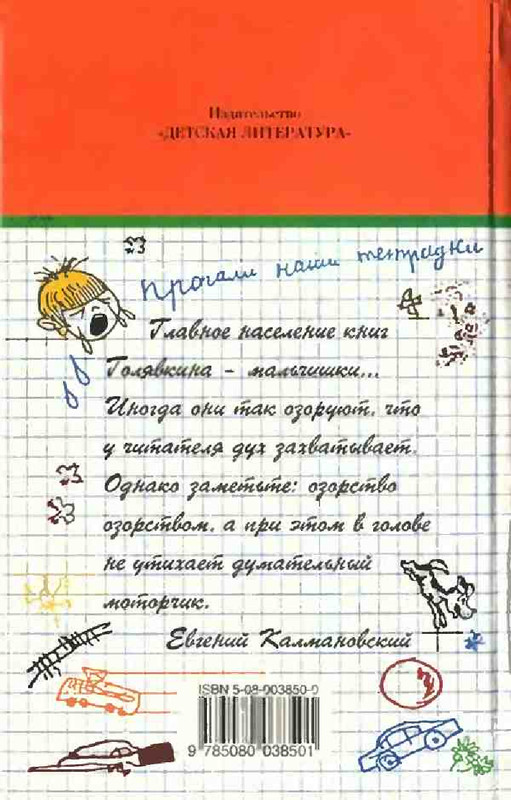 Издательство
«ДЕТСКАЯ ЛИТЕРАТУРА»
Прогали наши тетрадки
Главное население книг
Голявкина – мальчишки...
Иногда они так озоруют, что
у читателя дух захватывает.
Однако заметьте: озорство
озорством, а при этом в голове
не утихает думательный
моторчик.
Евгений Калмановский
ISBN 5-08-003850-0
9 785080 038501